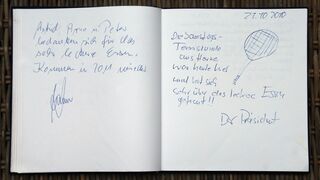 Astrid, Arno u. Peter
bedanken sich für das
sehr leckere Essen.
Kommen in 2011 wieder
27.10.2010
Die Samstags-
Tennisrunde
aus Horue
war heute hier
und hat sich
sehr über das leckere Essen
gefreut!!
Der Präsident